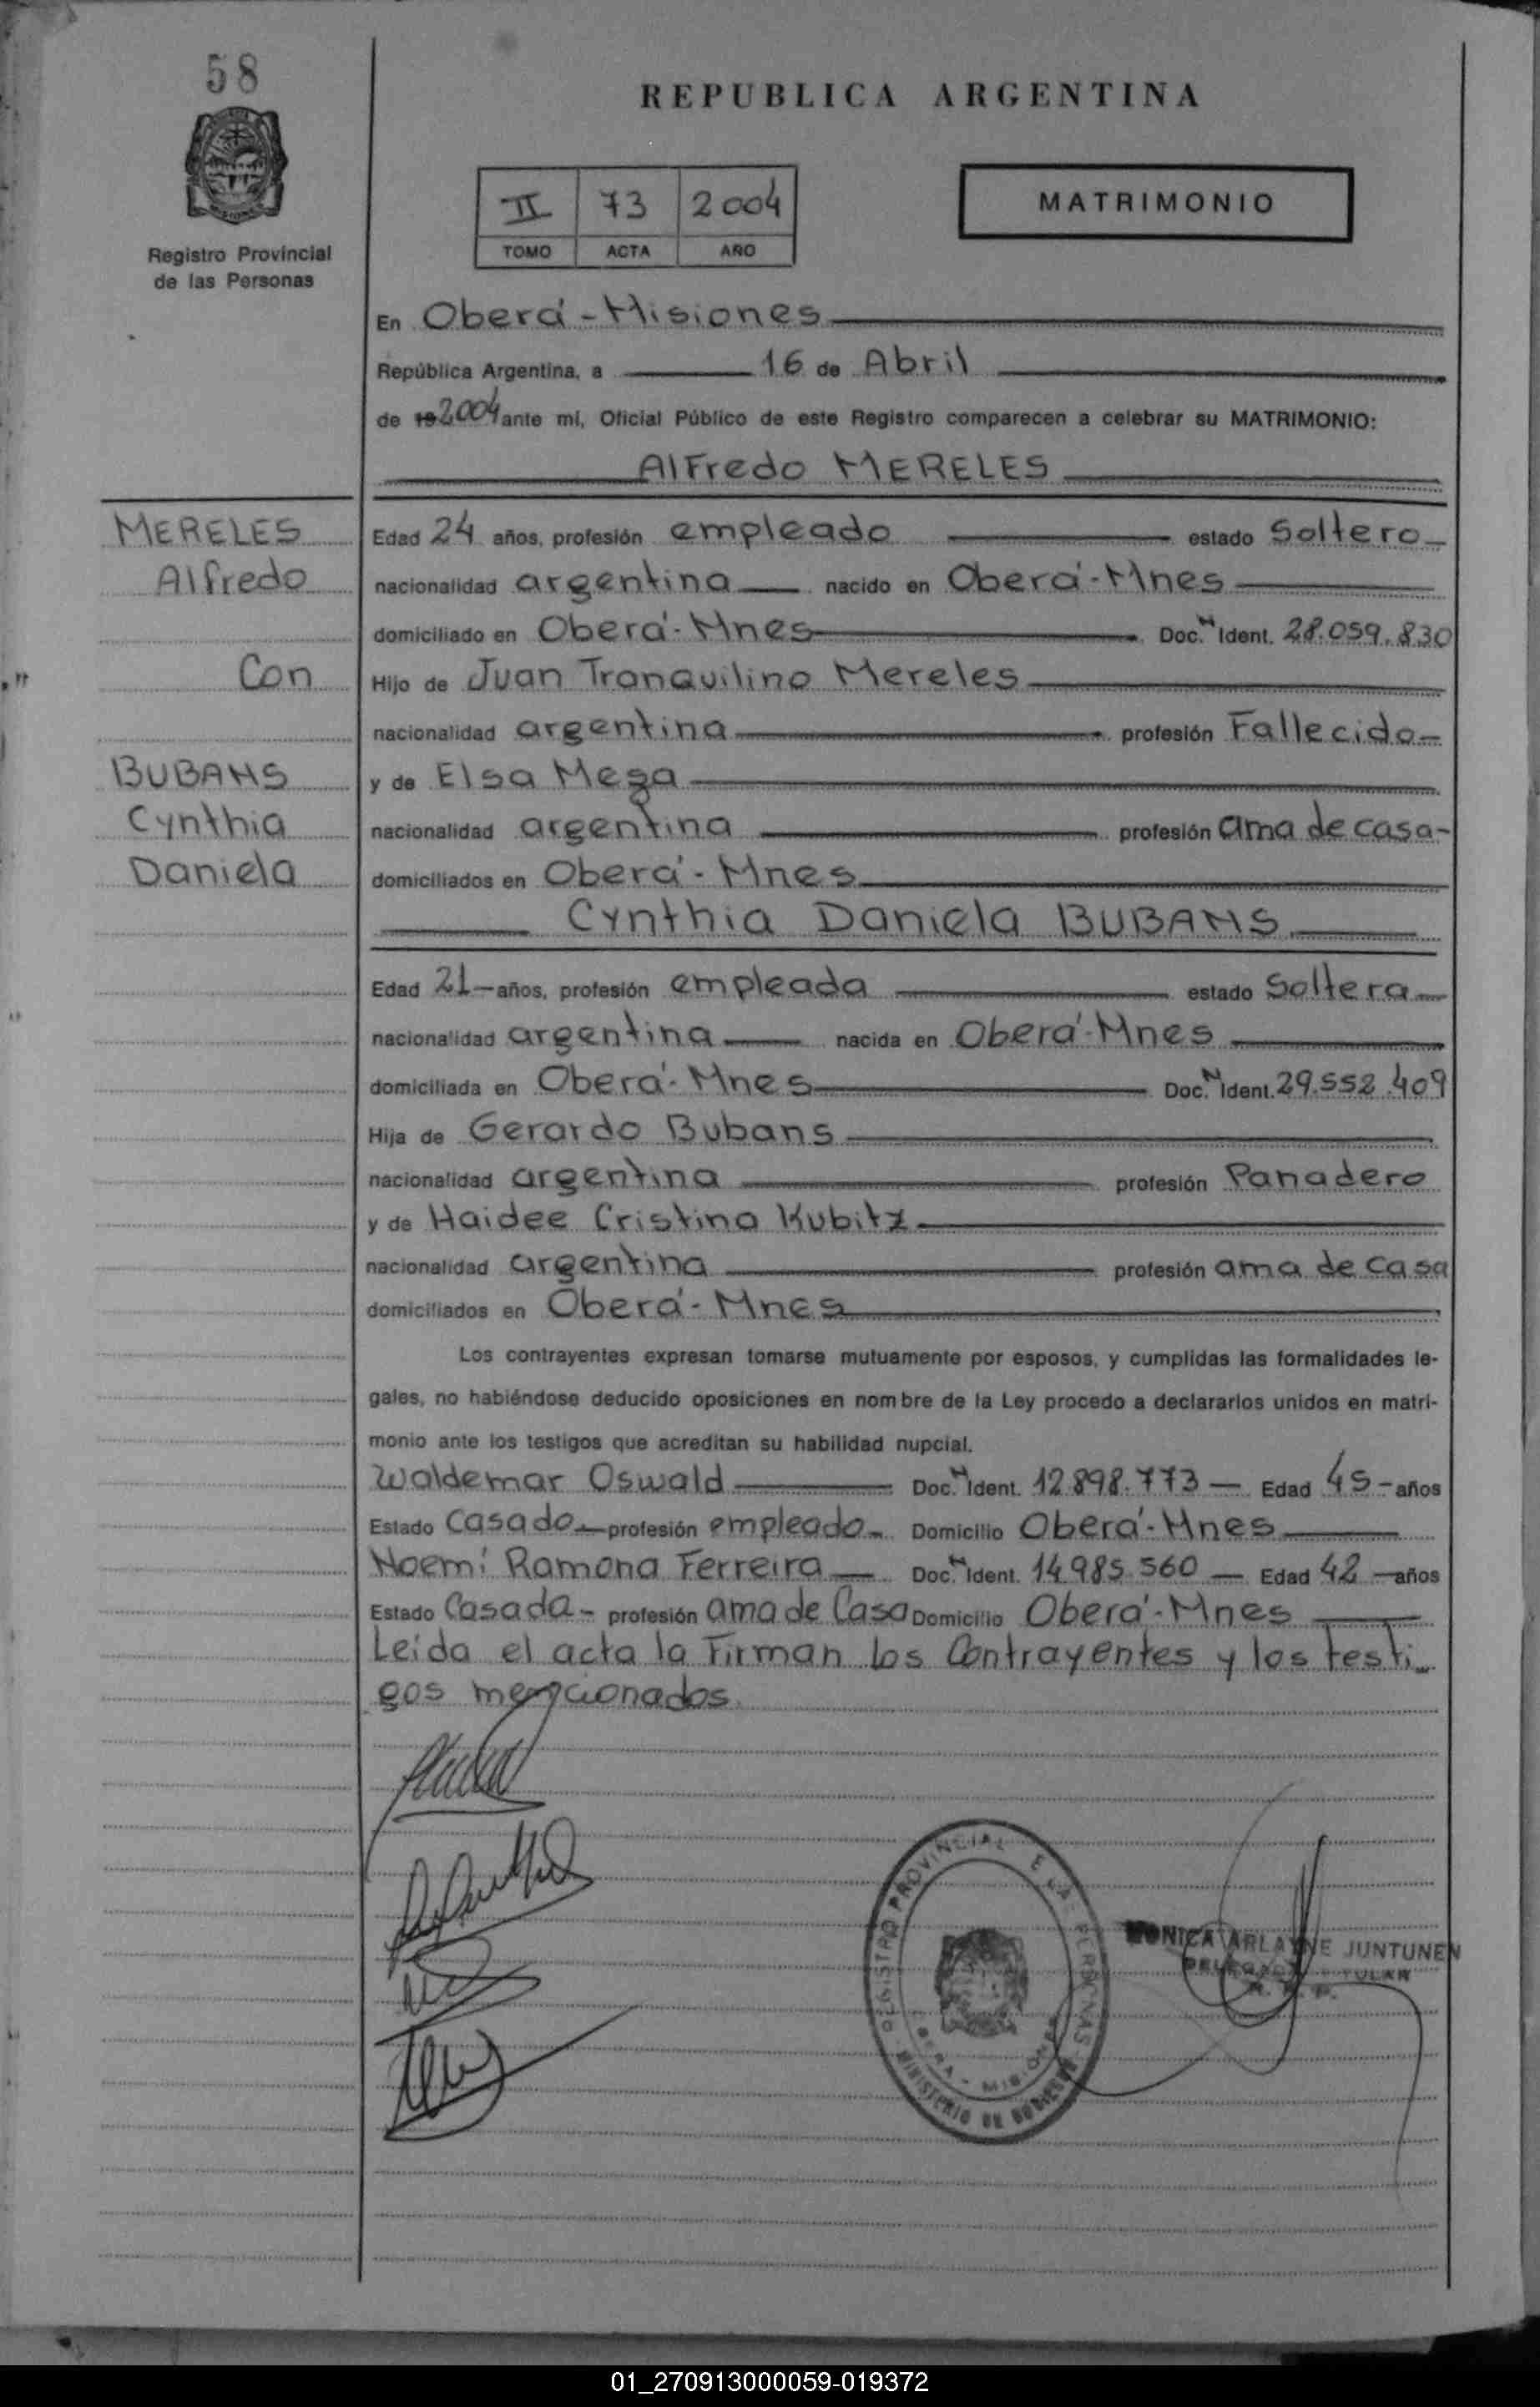 58
REPUBLICA ARGENTINA
II 73 2004
TOMO ACTA AÑO
MATRIMONIO
Registro Provincial
de las Personas
En Oberá - Misiones
República Argentina, a 16 de Abril
de 19 2004 ante mí, Oficial Público de este Registro comparecen a celebrar su MATRIMONIO:
Alfredo MERELES
MERELES
Alfredo
Con
BUBANS
Cynthia
Daniela
Edad 24 años, profesión empleado estado Soltero
nacionalidad argentina nacido en Oberá - Mnes
domiciliado en Oberá - Mnes Doc. N Ident. 28.059.830
Hijo de Juan Tranquilino Mereles
nacionalidad argentina profesión Fallecido
y de Elsa Meza
nacionalidad argentina profesión ama de casa -
domiciliados en Oberá - Mnes
Cynthia Daniela BUBANS
Edad 21 - años, profesión empleada estado Soltera
nacionalidad argentina nacida en Oberá - Mnes
domiciliada en Oberá - Mnes Doc. N Ident. 29.552.409
Hija de Gerardo Bubans
nacionalidad argentina profesión Panadero
y de Haidee Cristina Kubitz
nacionalidad argentina profesión ama de casa
domiciliados en Oberá - Mnes
Los contrayentes expresan tomarse mutuamente por esposos, y cumplidas las formalidades le-
gales, no habiéndose deducido oposiciones en nombre de la Ley procedo a declararlos unidos en matri-
monio ante los testigos que acreditan su habilidad nupcial.
Waldemar Oswald Doc. N Ident. 12.898.773 - Edad 45 - años
Estado Casado profesión empleado Domicilio Oberá - Mnes
Noemí Ramona Ferreira Doc. N Ident. 14.985.560 - Edad 42 - años
Estado Casada - profesión ama de Casa Domicilio Oberá - Mnes
Leída el acta la Firman los Contrayentes y los testi
gos mencionados.
REGISTRO PROVINCIAL E LAS PERSONAS
MINISTERIO DE GOBIERNO
MONICA ARLAYNE JUNTUNEN
01_270913000059-019372